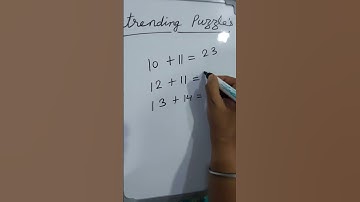 trending Puzzle's
10 + 11 = 23
12 + 11 =
13 + 14 =